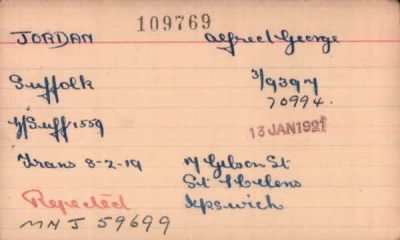 109769
JORDAN Alfred George
Suffolk 3/9397
70994.
4/Suff 1559
13 JAN 1921
Trans 8-2-19 17 Gibson St
St Helens
Rejected Ipswich
MNJ 59699